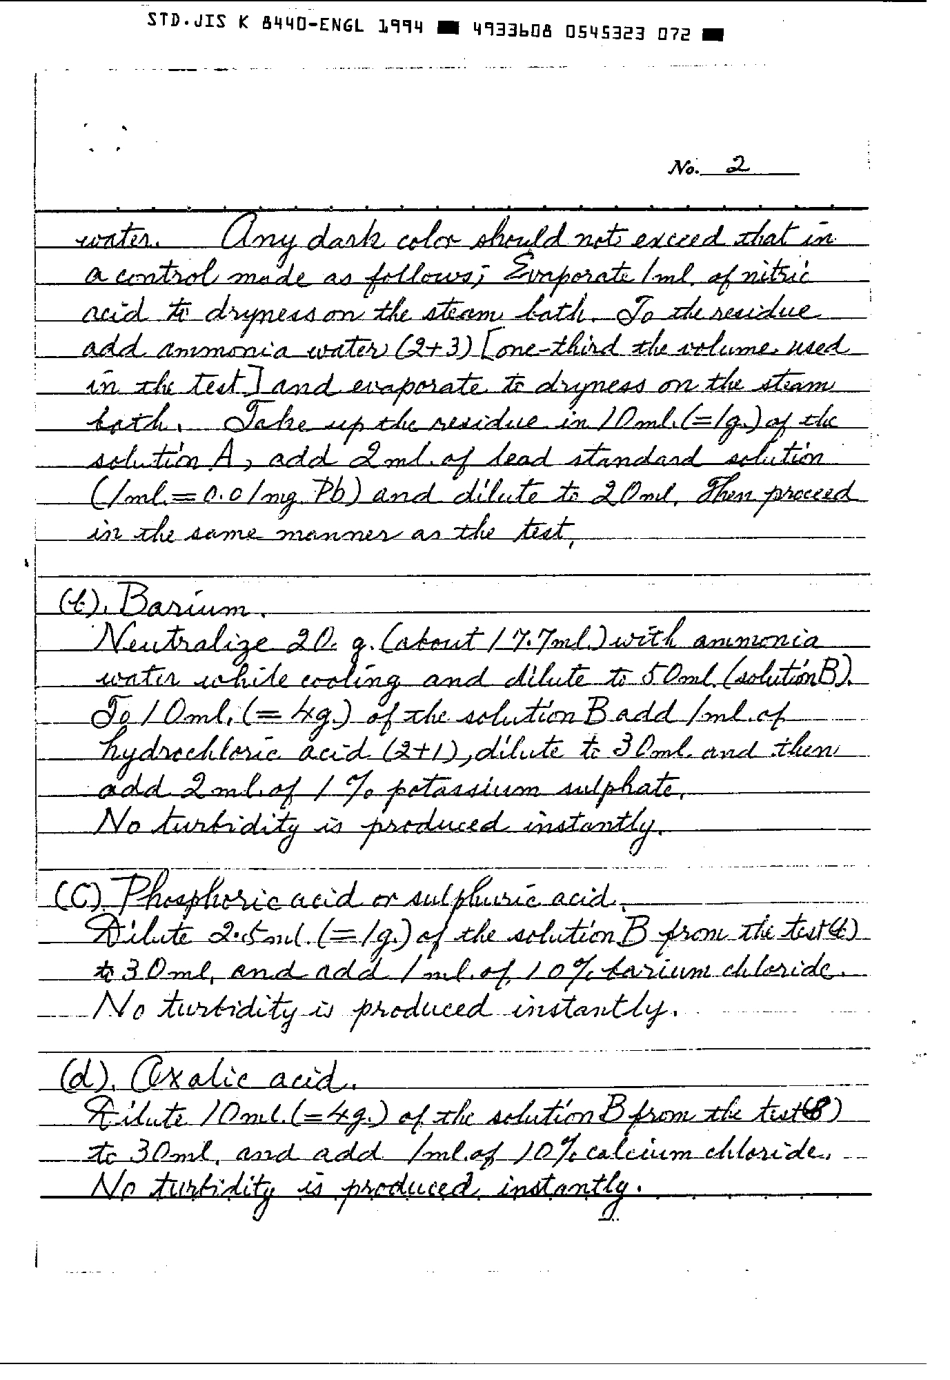 STD.JIS K 8440-ENGL 1994 4933608 0545323 072
No. 2
water. Any dark color should not exceed that in
a control made as follows; Evaporate 1ml. of nitric
acid to dryness on the steam bath. To the residue
add ammonia water (2+3) [one-third the volume used
in the test] and evaporate to dryness on the steam
bath. Take up the residue in 10ml.(=1g.) of the
solution A, add 2ml. of lead standard solution
(1ml.=0.01mg Pb) and dilute to 20ml. Then proceed
in the same manner as the test.
(b). Barium.
Neutralize 20. g. (about 17.7ml.) with ammonia
water while cooling and dilute to 50ml. (solution B).
To 10ml. (=4g.) of the solution B add 1ml. of
hydrochloric acid (2+1), dilute to 30ml. and then
add 2ml. of 1% potassium sulphate.
No turbidity is produced instantly.
(C). Phosphoric acid or sulphuric acid.
Dilute 2.5ml. (=1g.) of the solution B from the test (b)
to 30ml. and add 1ml. of 10% barium chloride.
No turbidity is produced instantly.
(d). Oxalic acid.
Dilute 10ml.(=4g.) of the solution B from the test (B)
to 30ml. and add 1ml. of 10% calcium chloride.
No turbidity is produced instantly.